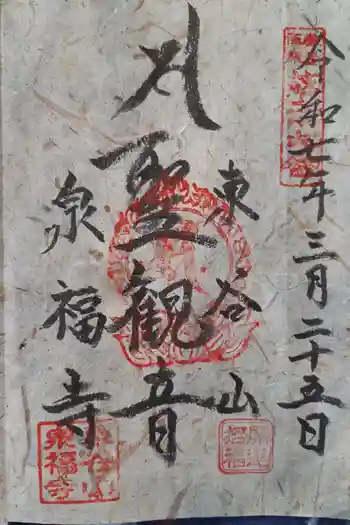 令和七年三月二十五日
東谷山
聖観音
泉福寺
泉福寺